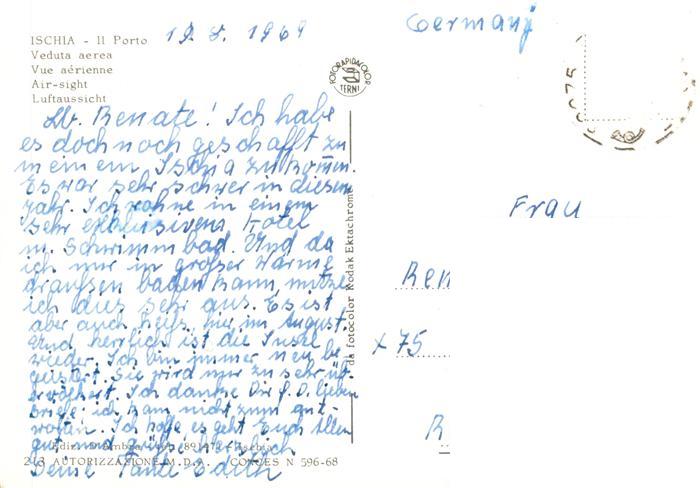 19. 8. 1969
Germany
ISCHIA - Il Porto
Veduta aerea
Vue aérienne
Air-sight
Luftaussicht
FOTORAPIDACOLOR
TERNI
Lb. Renate! Ich habe
es doch noch geschafft zu
meinem Ischia zu komm.
Es war sehr schwer in diesem
Jahr. Ich wohne in einem
sehr exklusivens Hotel
m. Schwimmbad. Und da
ich nur in großer Wärme
draußen baden kann, nütze
ich dies sehr aus. Es ist
aber auch heiß hier im August.
Und herrlich ist die Insel
wieder. Ich bin immer neu be
geistert. Sie wird nur zu sehr üb
ervölkert. Ich danke Dir f. D. lieben
Briefe. ich kam nicht zum ant-
worten. Ich hoffe es geht Euch Allen
gut und grüße herzlich
Deine Tante Edith
243 AUTORIZZAZIONE M.D.A. CONCES N 596-68
da fotocolor Kodak Ektachrome
Frau
Ren
x 75
R
75